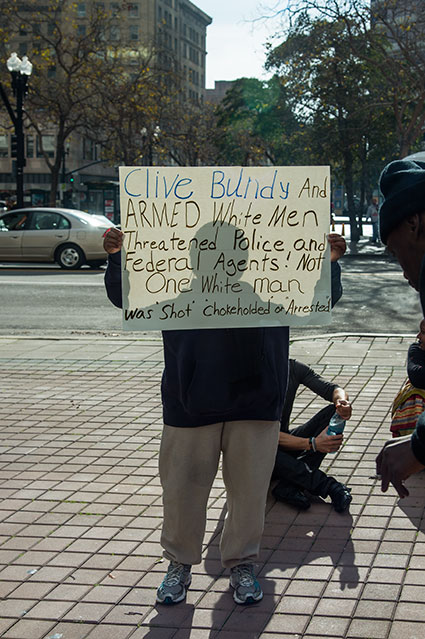 Clive Bundy And
ARMED White Men
Threatened Police and
Federal Agents! Not
One White man
was "Shot" "Chokeholded" or "Arrested"